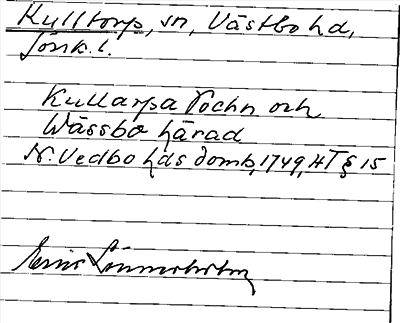 Kulltorp, sn, Västbo hd,
Jönk. l.
Kullarpa Sochn och
Wässbo härad
N. Vedbo hds domb, 1749, HT § 15